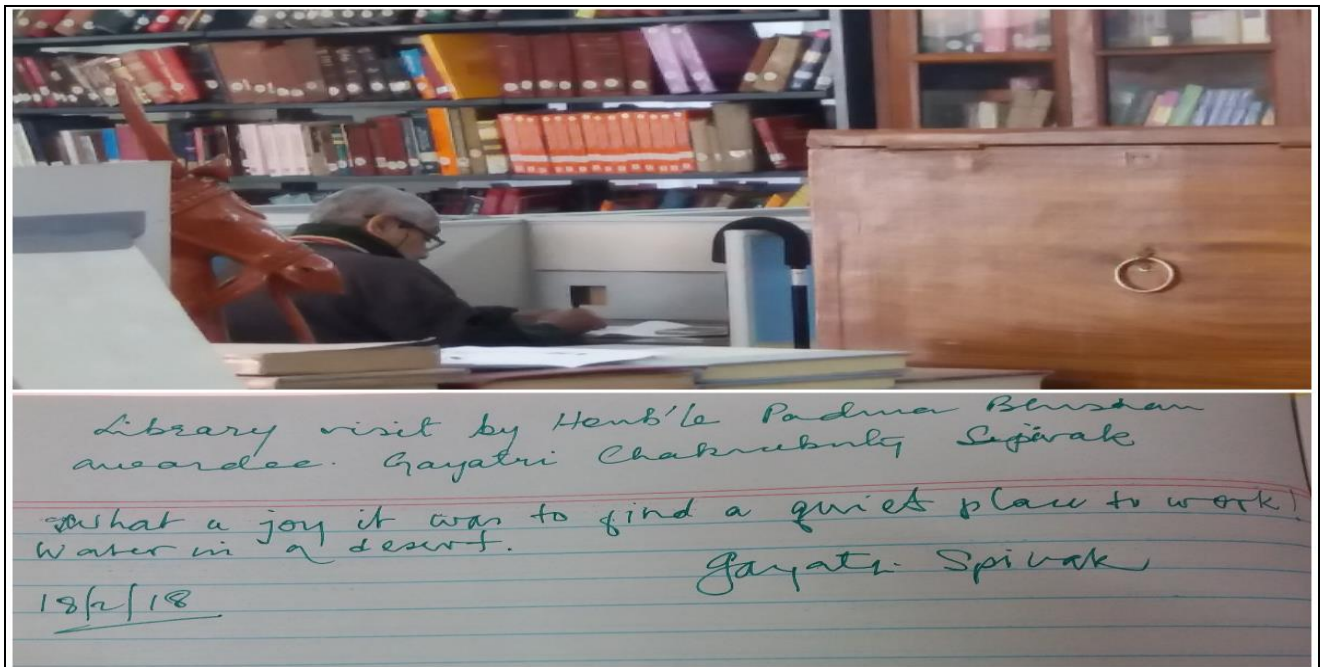 Library visit by Honb'le Padma Bhushan
awardee. Gayatri Chakrabuty Spivak
What a joy it was to find a quiet place to work!
Water in a desert.
Gayatri Spivak
18/2/18